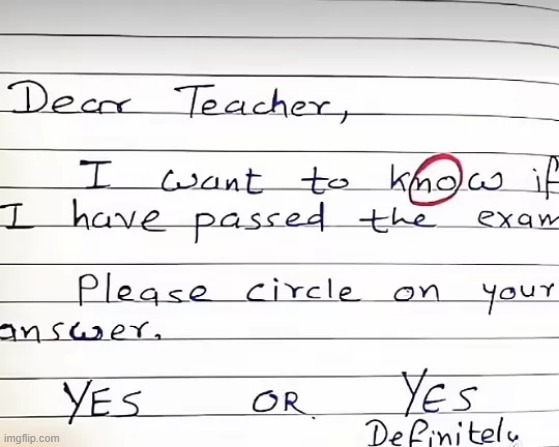 Dear Teacher,
I want to know if
I have passed the exam
Please circle on your
answer.
YES OR YES
Definitely
imgflip.com